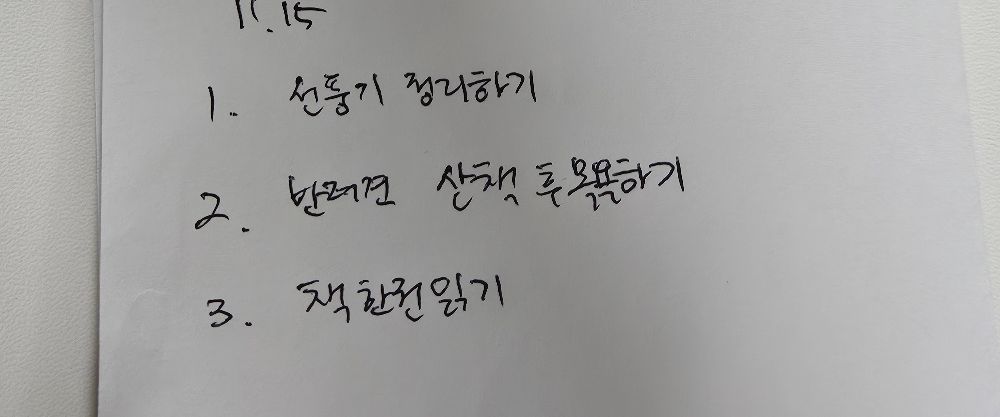 11.15
1. 선풍기 정리하기
2. 반려견 산책 후 목욕하기
3. 책 한권 읽기